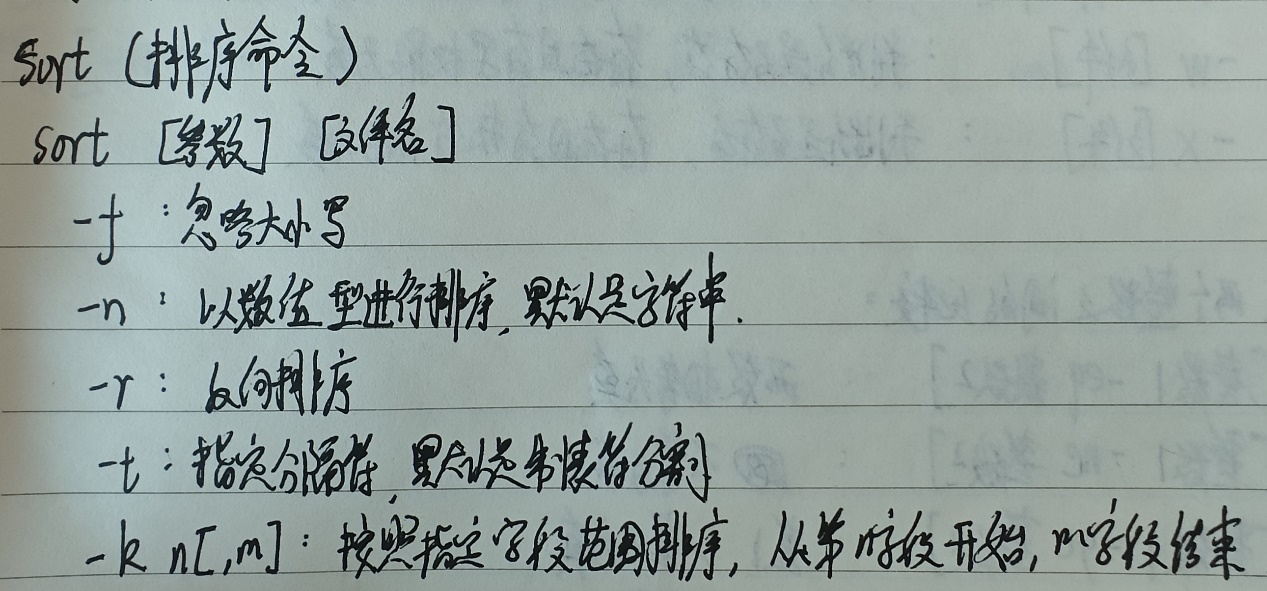 sort (排序命令)
sort [参数] [文件名]
-f : 忽略大小写
-n : 以数值型进行排序, 默认是字符串.
-r : 反向排序
-t : 指定分隔符, 默认是制表符分割
-k n[,m] : 按照指定字段范围排序, 从第n字段开始, m字段结束